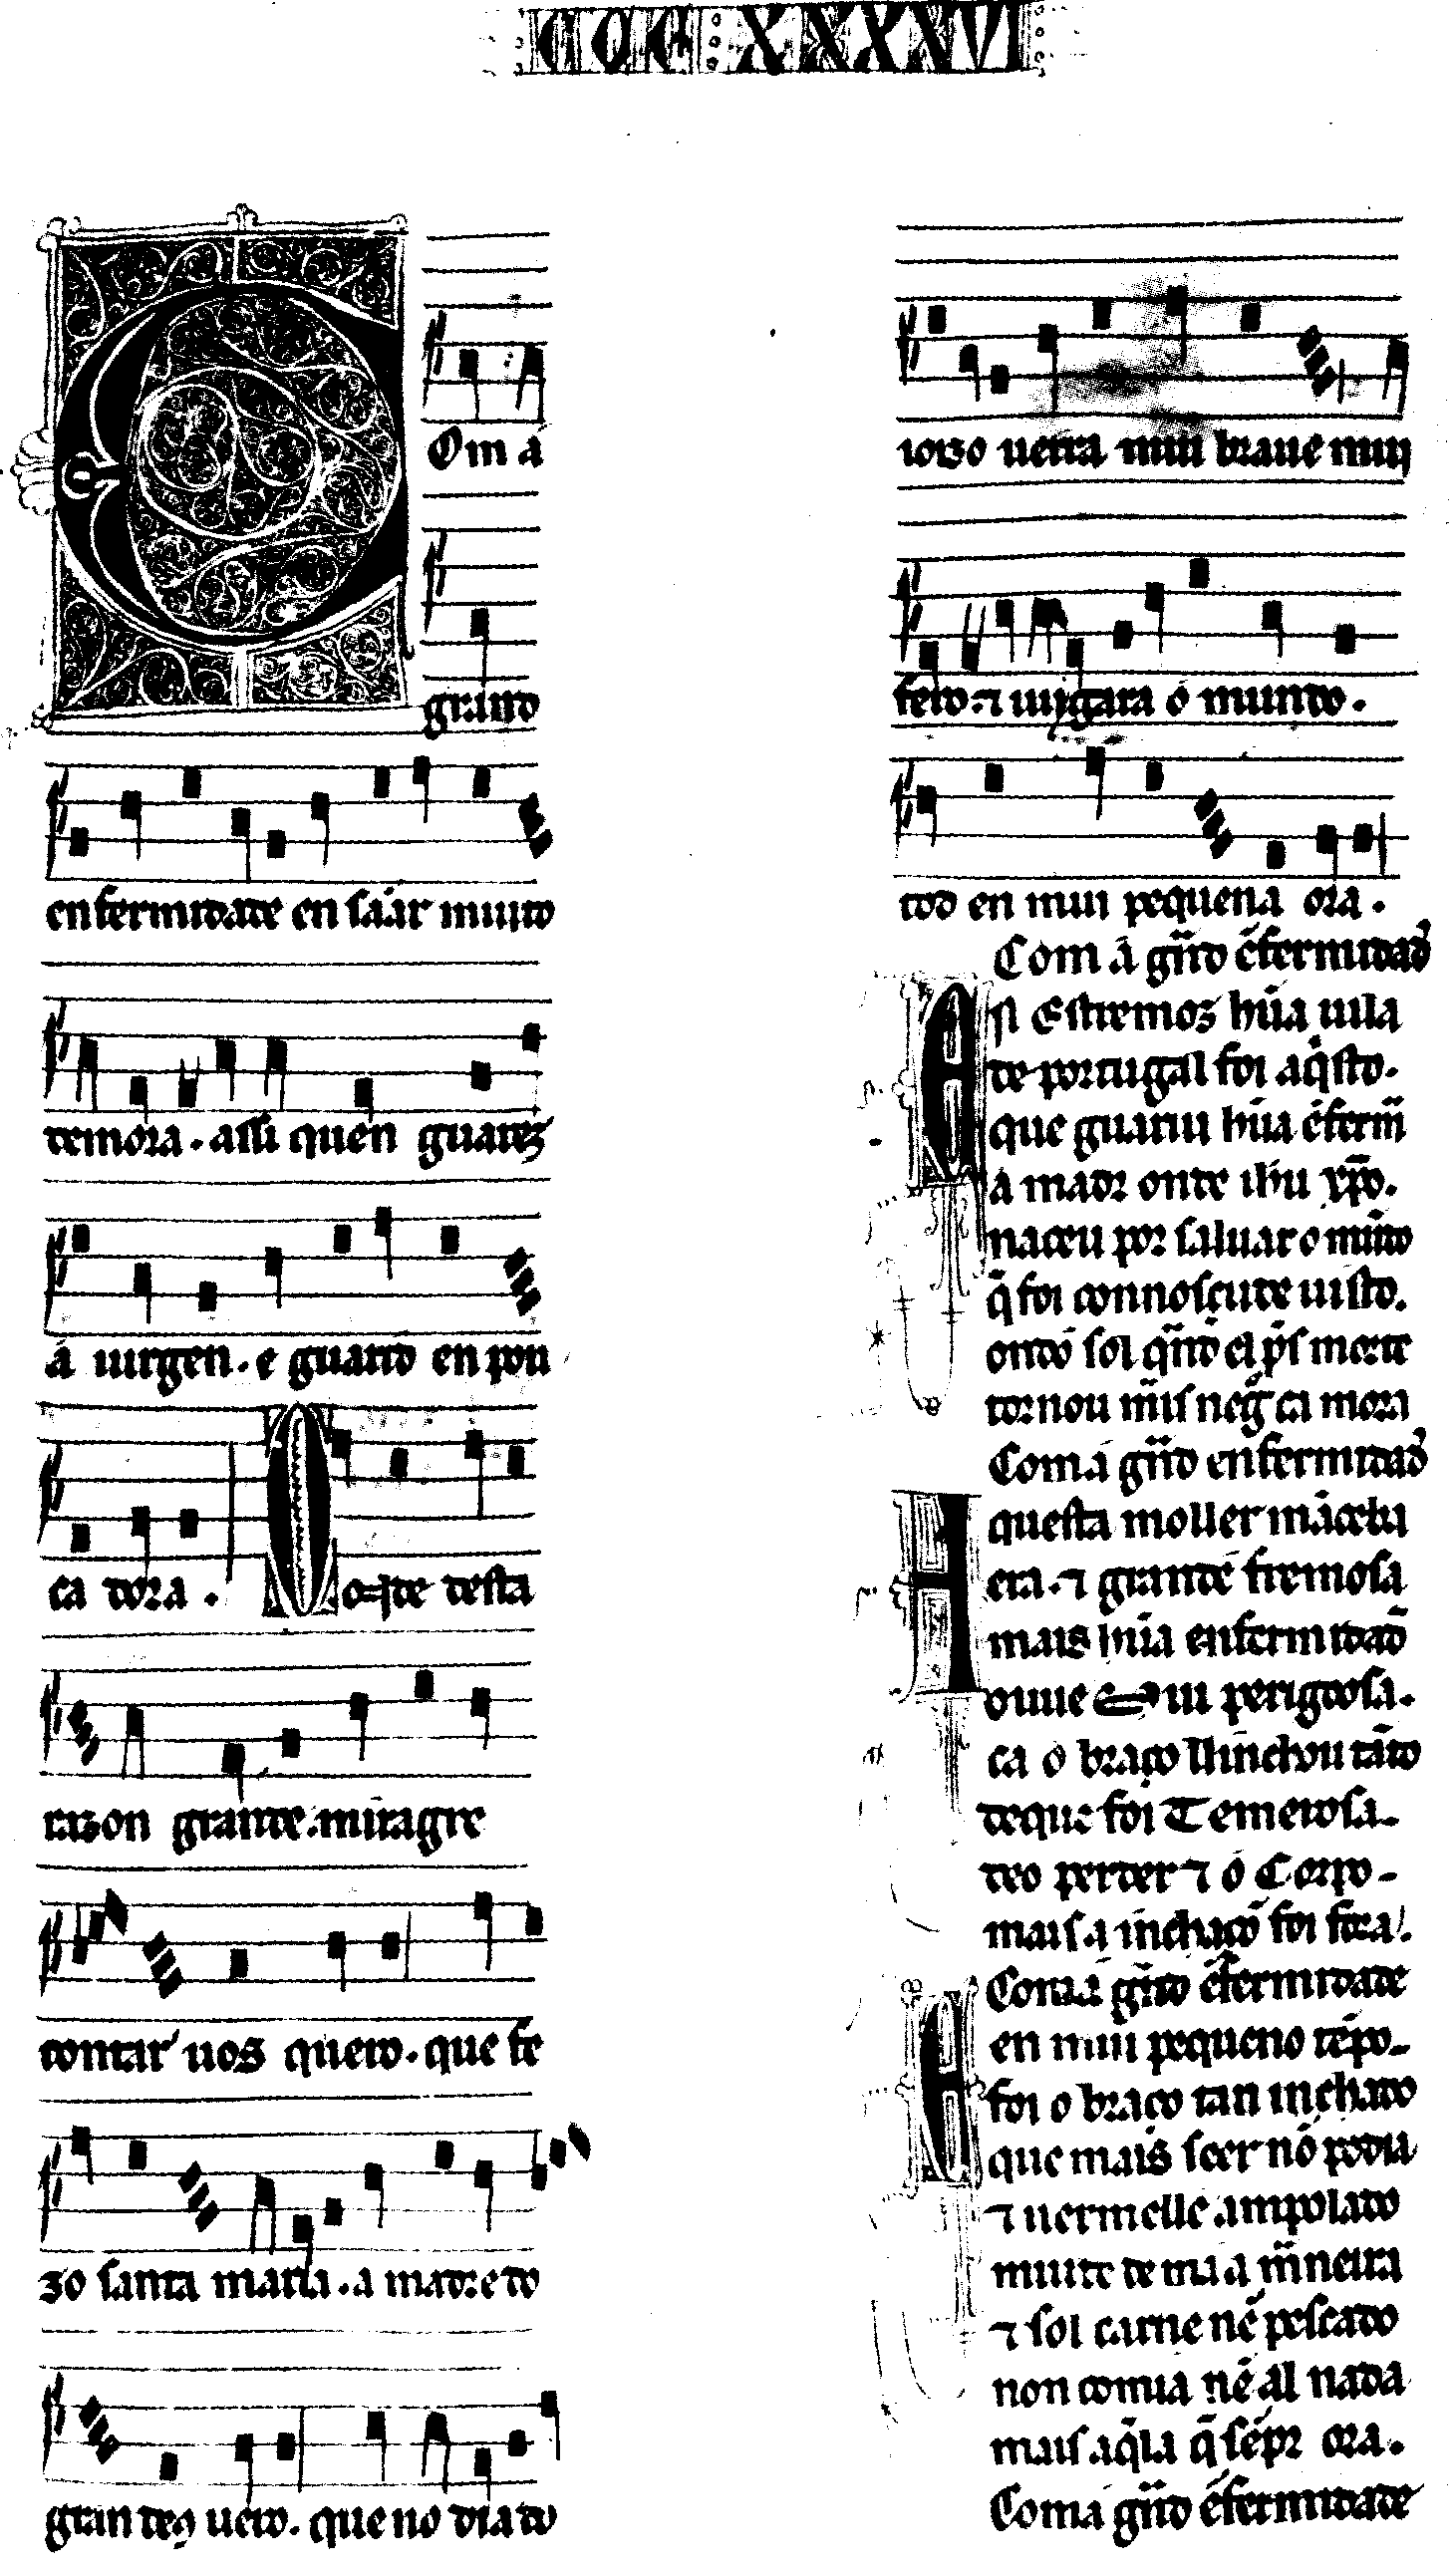 CCC XXXVI
Com á
grand
enfermidade en sãar muito
demora · assi quen guarez
á uirgen · e guarid en pou
ca dora · Onde desta
razon grande · miragre
contar uos quero · que fe
zo santa maria · a madre do
gran deꝯ uero · que no dia do
ioizo uerra mui braue mui
fero · ⁊ iuygara o mundo ·
tod en mui pequena ora ·
Com á grãd ẽfermidad
En Estremoz hũa uila
de portugal foi aq̃sto ·
que guariu hũa ẽferm̃
a madr onde ihu xp̃o ·
naceu por saluar o mũdo
q̃ foi connosçud e uisto ·
ond o sol q̃nd el p̃s morte
tornou m̃is neg̃ ca mora
Com á grãd enfermidad
Aquesta moller mãceba
era · ⁊ grande fremosa
mais hũa enfermidad
ouue mui perigoosa ·
ca o braço ll inchou tãto
de que foi Temerosa
deo perder ⁊ o Corpo
mais a inchaço foi fora ·
Com á grãd ẽfermidade
En mui pequeno tẽpo
foi o braço tan inchado
que mais seer nõ podia
⁊ uermelle ampolado
muit e de maa m̃neira
⁊ sol carne nẽ pescado
non comia nẽ al nada
mais aq̃la q̃ sẽpr ora ·
Com á grãd ẽfermidade